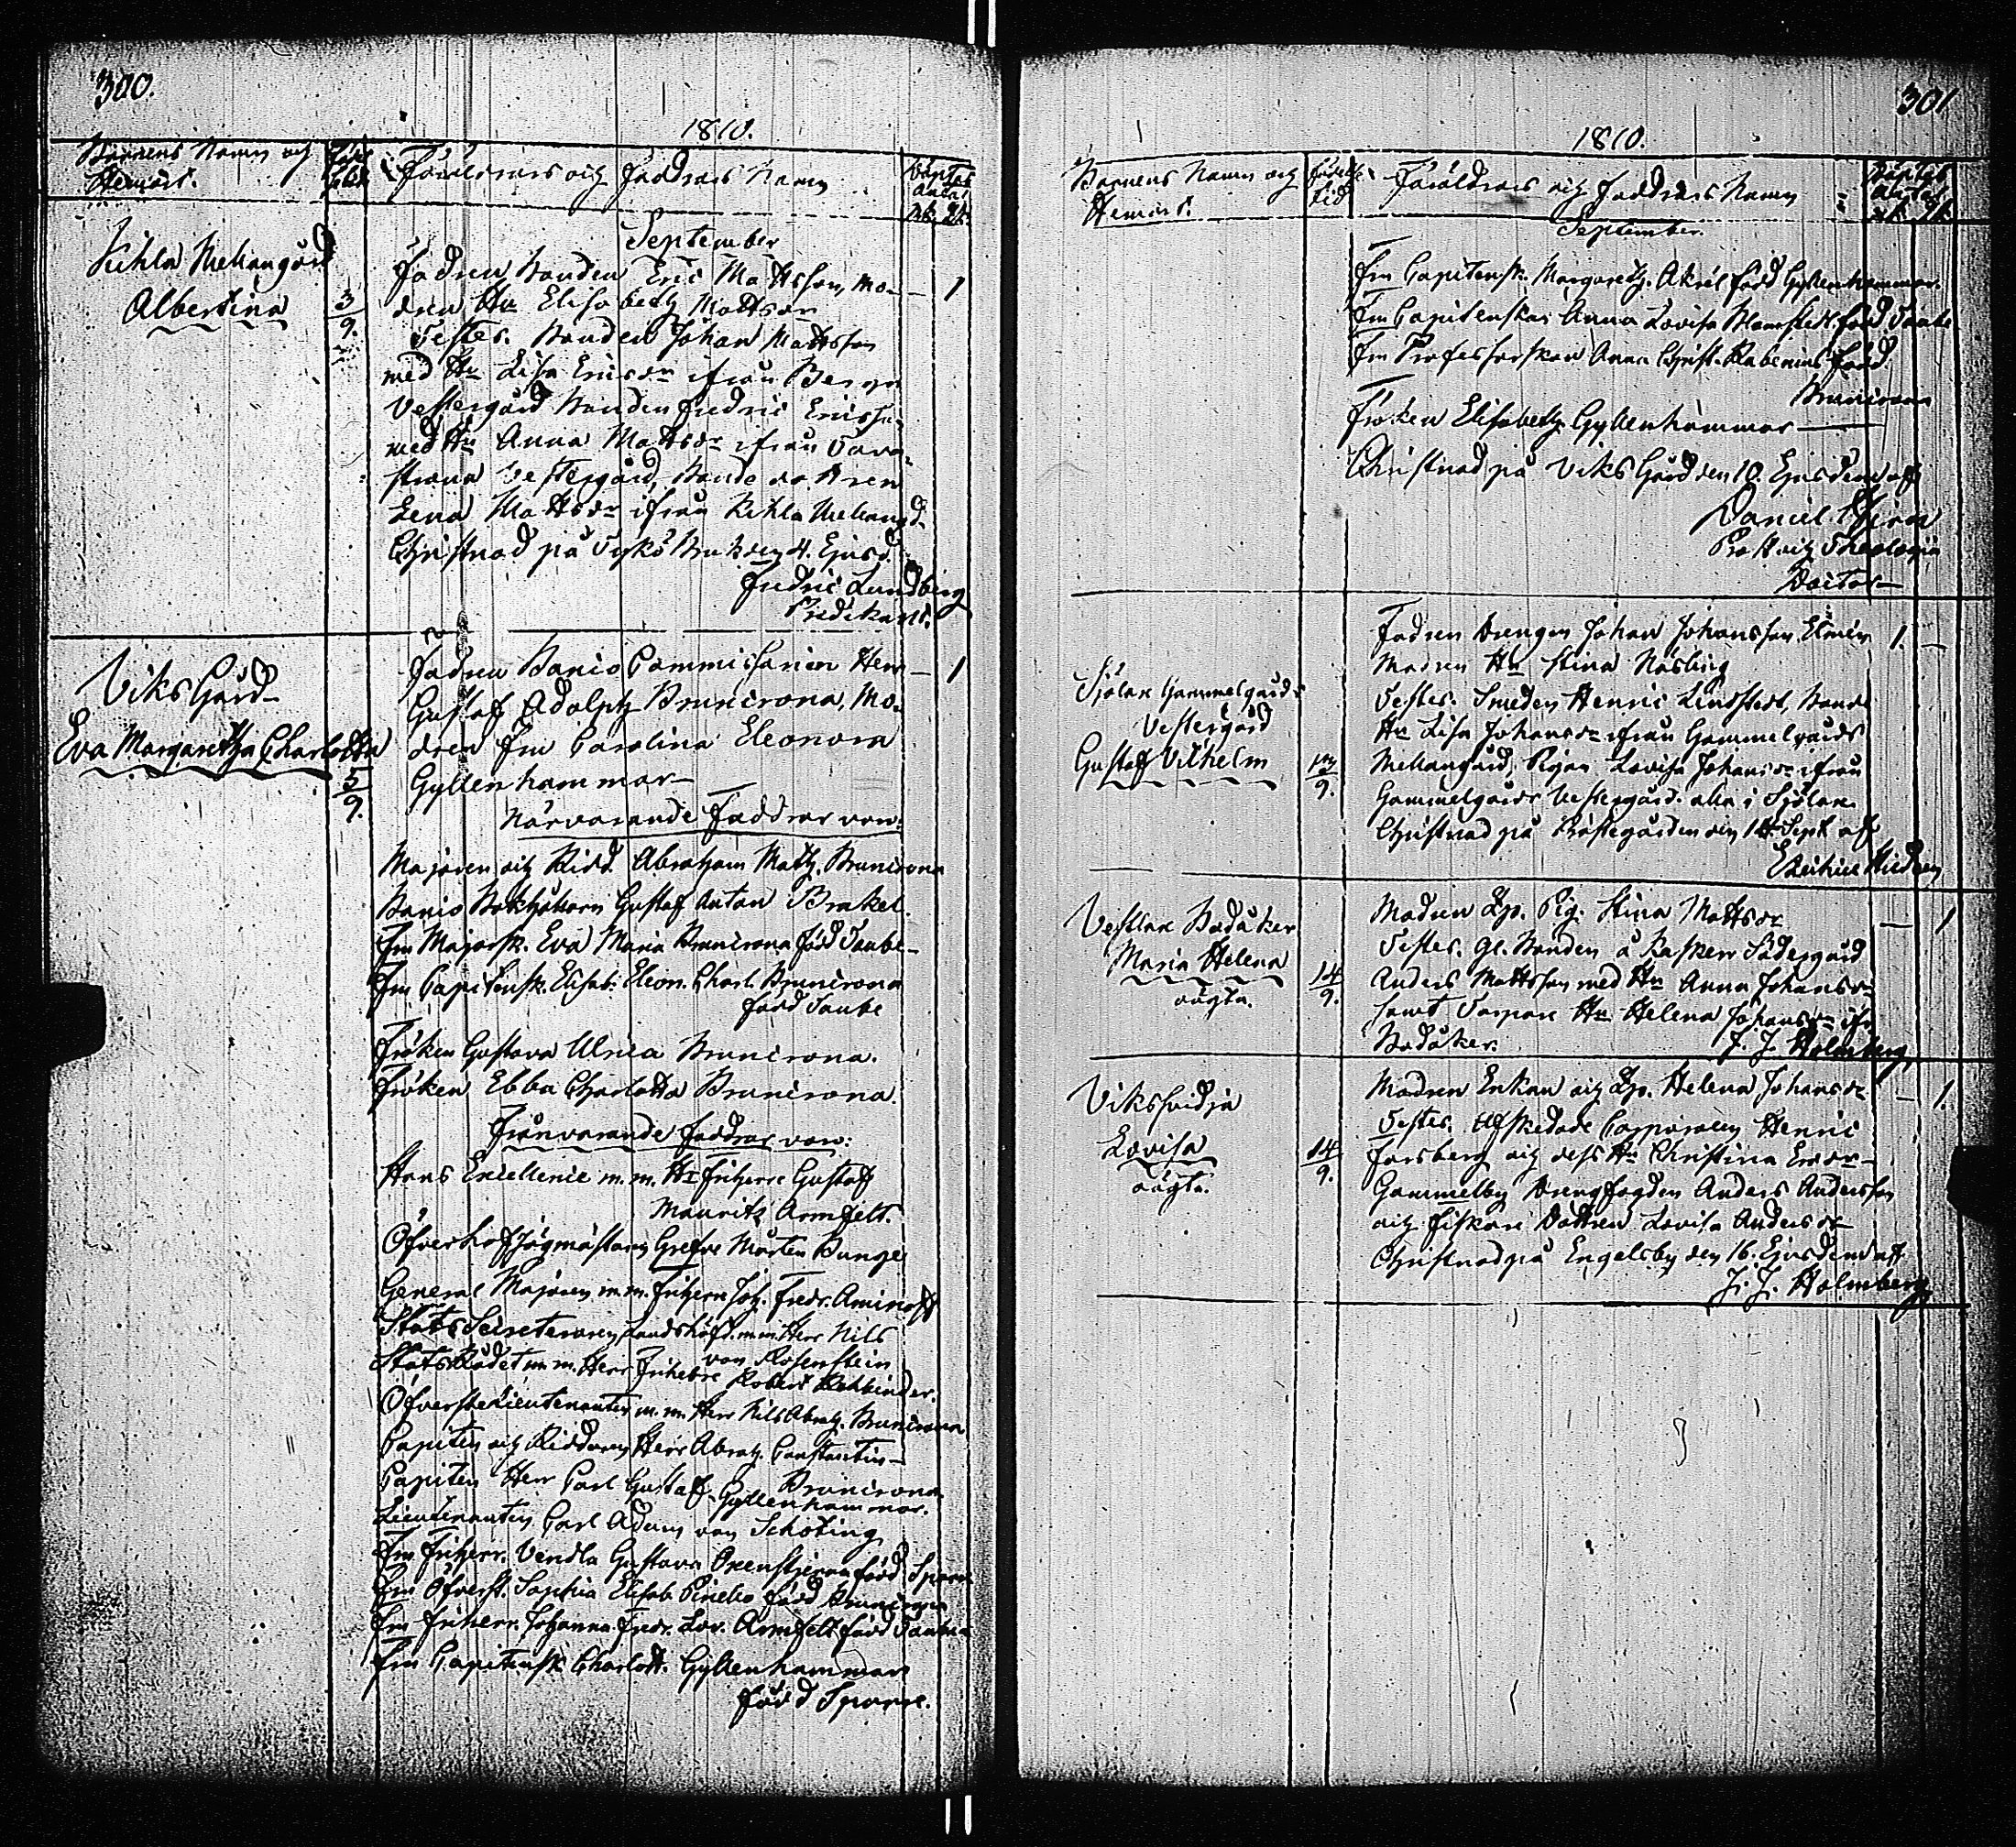 300.
1810.
Barnens Namn och
Hemort.
Föräldrars och Faddrars Namn
September
Kihla Mellangård
Albertina
3
9.
Fadren Bonden Eric Mattsson, Mo- — 1
dren Hu Elisabeth Mattsdr
Testes. Bonden Johan Mattsson
med Hu Lisa Ericsdr ifrån
Vestergård Bonden Fredric Ericsson
med Hu Anna Mattsdr ifrån
Vestergård,
Lena Mattsdr ifrån Kihla Mellangd
Christnad på Bruk den 4. Ejusd.
Fredric Lundberg
Predikant.
Viks Gård
Eva Margaretha Charlotta
5
9.
Fadren Banco Commissarien Herr — 1
Gustaf Adolph Bruncrona, Mo-
dren Fru Carolina Eleonora
Gyllenhammar
Närvarande Faddrar voro:
Majoren och Ridd. Abraham Math. Bruncrona
Banco Bokhållarn Gustaf Anton Brakel.
Fru Majorsk. Eva Maria Bruncrona född Taube
Fru Capitensk. Elisab: Eleon. Charl. Bruncrona
född Taube
Fröken Gustava Ulrica Bruncrona.
Fröken Ebba Charlotta Bruncrona.
Frånvarande Faddrar voro:
Hans Excellence m.m. Hr Friherre Gustaf
Mauritz Armfelt.
Öfverhofjägmästaren Grefve Mårten Bunge
General Majoren m.m. Friherre Joh. Fredr. Aminoff
Stats Secreteraren, Landshöfd. m.m. Herr Nils
von Rosenstein
Stats Rådet m.m. Herr Friherre Robert Rehbinder.
Öfverste Lieutenanten m.m. Herr Nils Abrah. Bruncrona
Capiten och Riddaren Herr Abrah. Constantin
Bruncrona
Capiten Herr Carl Gustaf Gyllenhammar.
Lieutenanten Carl Adam von Schoting
Fru Friherr. Vendla Gustava Oxenstjerna född Sparre
Fru Öfverst. Sophia Elisab. född Bruncrona
Fru Friherr. Johanna Fredr. Lov. Armfelt född Taube
Fru Capitensk Charlott. Gyllenhammar
född Sparre.
301
1810.
Barnens Namn och
Hemort.
Födelse
tid
Föräldrars och Faddrars Namn
September.
Fru Capitensk. Margareth. född Gyllenhammar.
Fru Capitenskan Anna Lovisa född Taube
Fru Professorskan Anna Christ. Rabenius född
Bruncrona
Fröken Elisabeth Gyllenhammar
Christnad på Viks Gård den 10. Ejusdem af
Daniel
Prost och Theologiæ
Doctor
Sjölax Gammelgårds
Vestergård
Gustaf Vilhelm
13
9.
Fadren Drengen Johan Johansson 1. —
Modren Hu Stina Näsling
Testes. Smeden Henric Lindstedt,
Hu Lisa Johansdr ifrån Gammelgårds
Mellangård, Pigan Lovisa Johansdr ifrån
Gammelgårds Vestergård. alla i Sjölax
Christnad på Prästegården den 14 Sept af
Vestlax Bodåker
Maria Helena
oägta.
14
9.
Modren Lp. Pig. Stina Mattsdr — 1
Testes. Gl. Bonden å Södergård
Anders Mattsson med Hu Anna Johansdr
samt Hu Helena Johansdr ifr
Bodåker. J. J. Holmberg
Viksvidja
Lovisa
oägta.
14
9.
Modren Enkan och Lp. Helena Johansdr — 1.
Testes. Afskedade Corporalen Henric
Forsberg och dess Hu Christina Ersdr
Gammelby Drengfogden Anders Andersson
och Fiskare Dottren Lovisa Andersdr
Christnad på Engelsby den 16. Ejusdem af
J. J. Holmberg